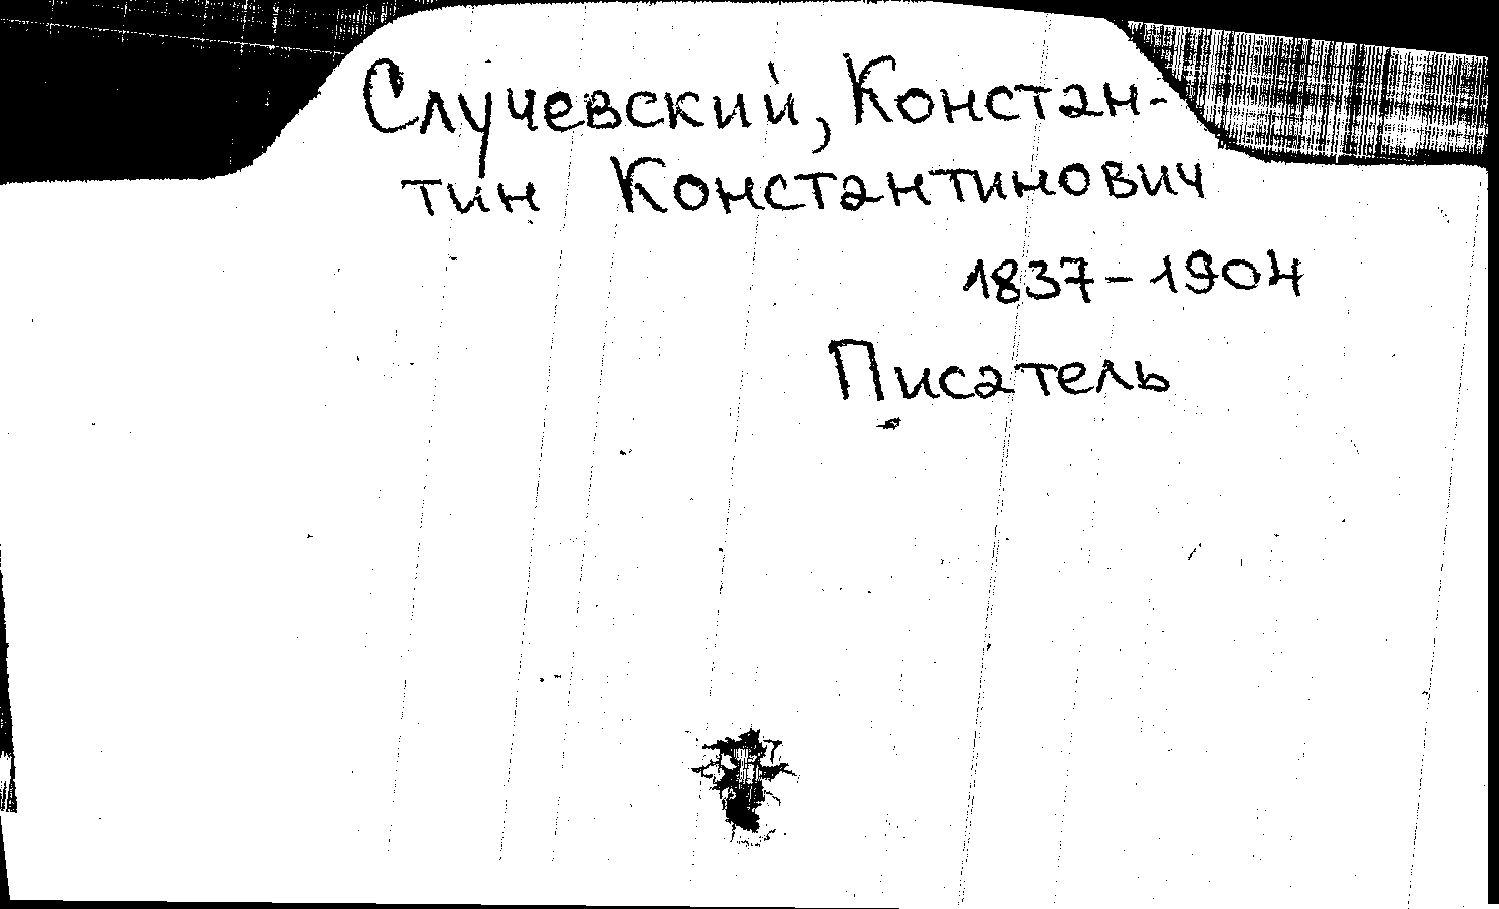 Случевский, Констан-
тин Константинович
1837-1904
Писатель